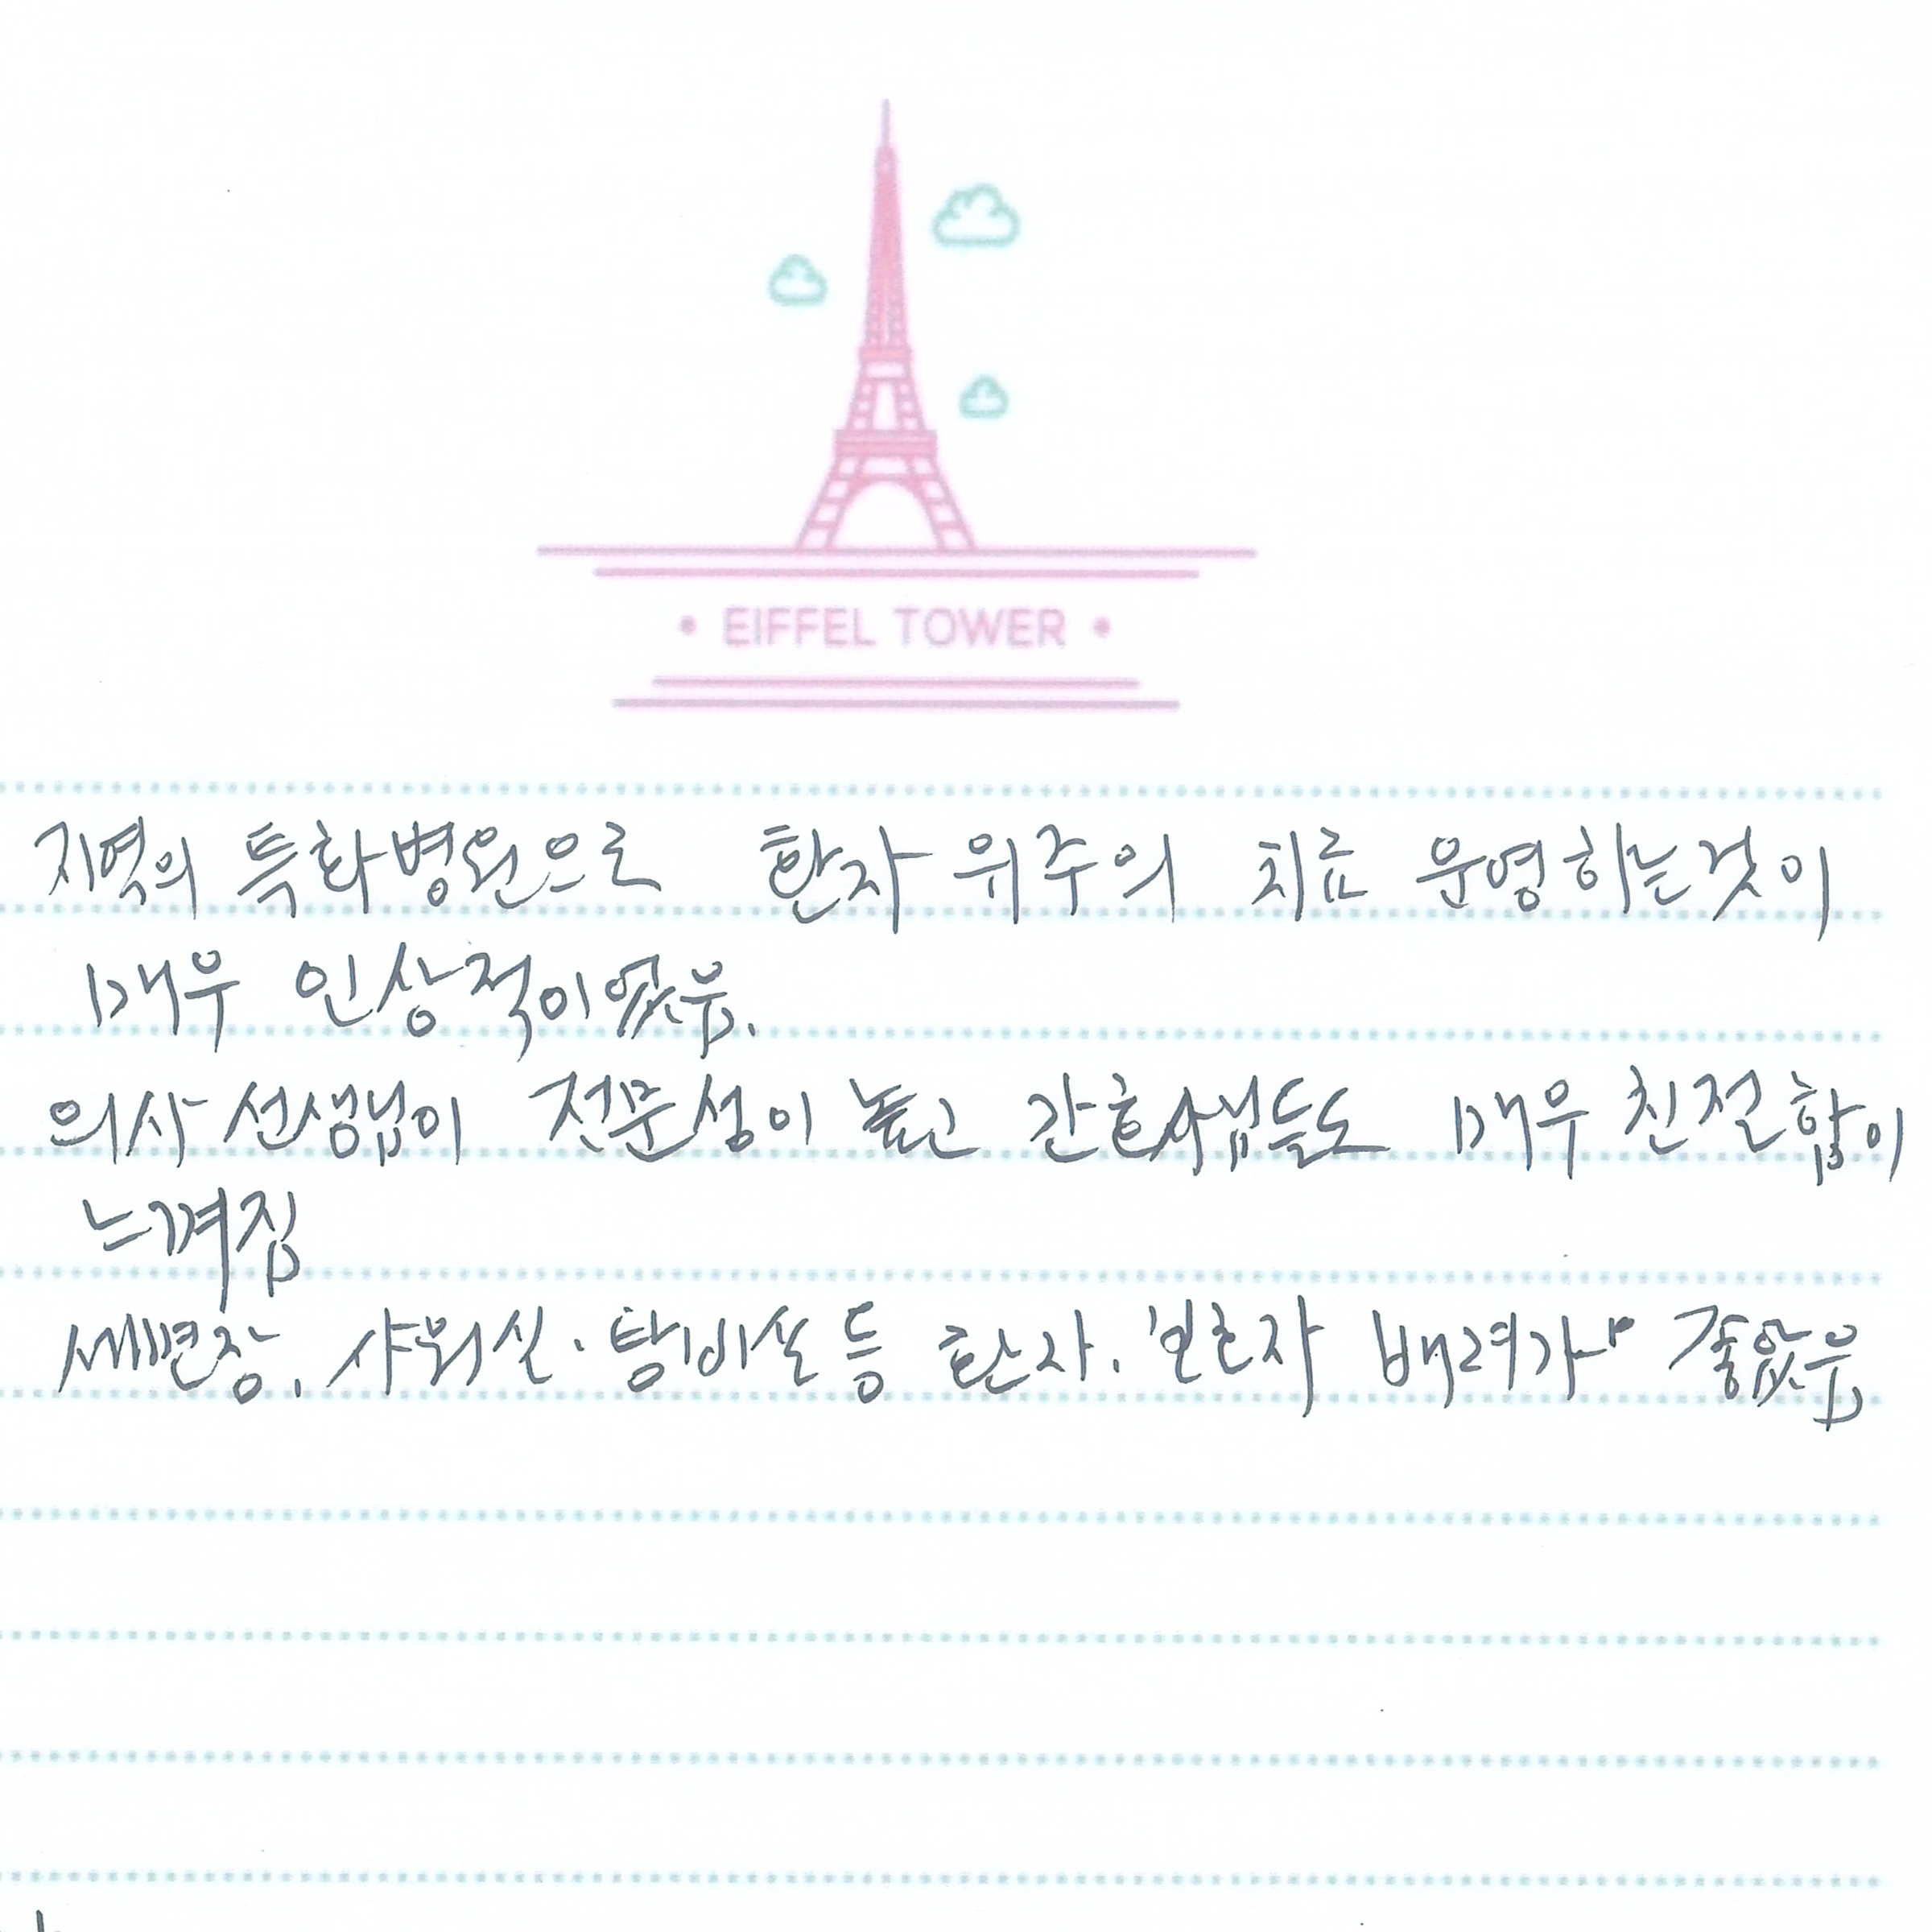 • EIFFEL TOWER •
지역의 특화병원으로 환자 위주의 치료 운영하는것이
매우 인상적이었음.
의사 선생님이 전문성이 높고 간호사님들도 매우 친절함이
느껴짐
세면장, 샤워실·탕비실 등 환자, 보호자 배려가 좋았음